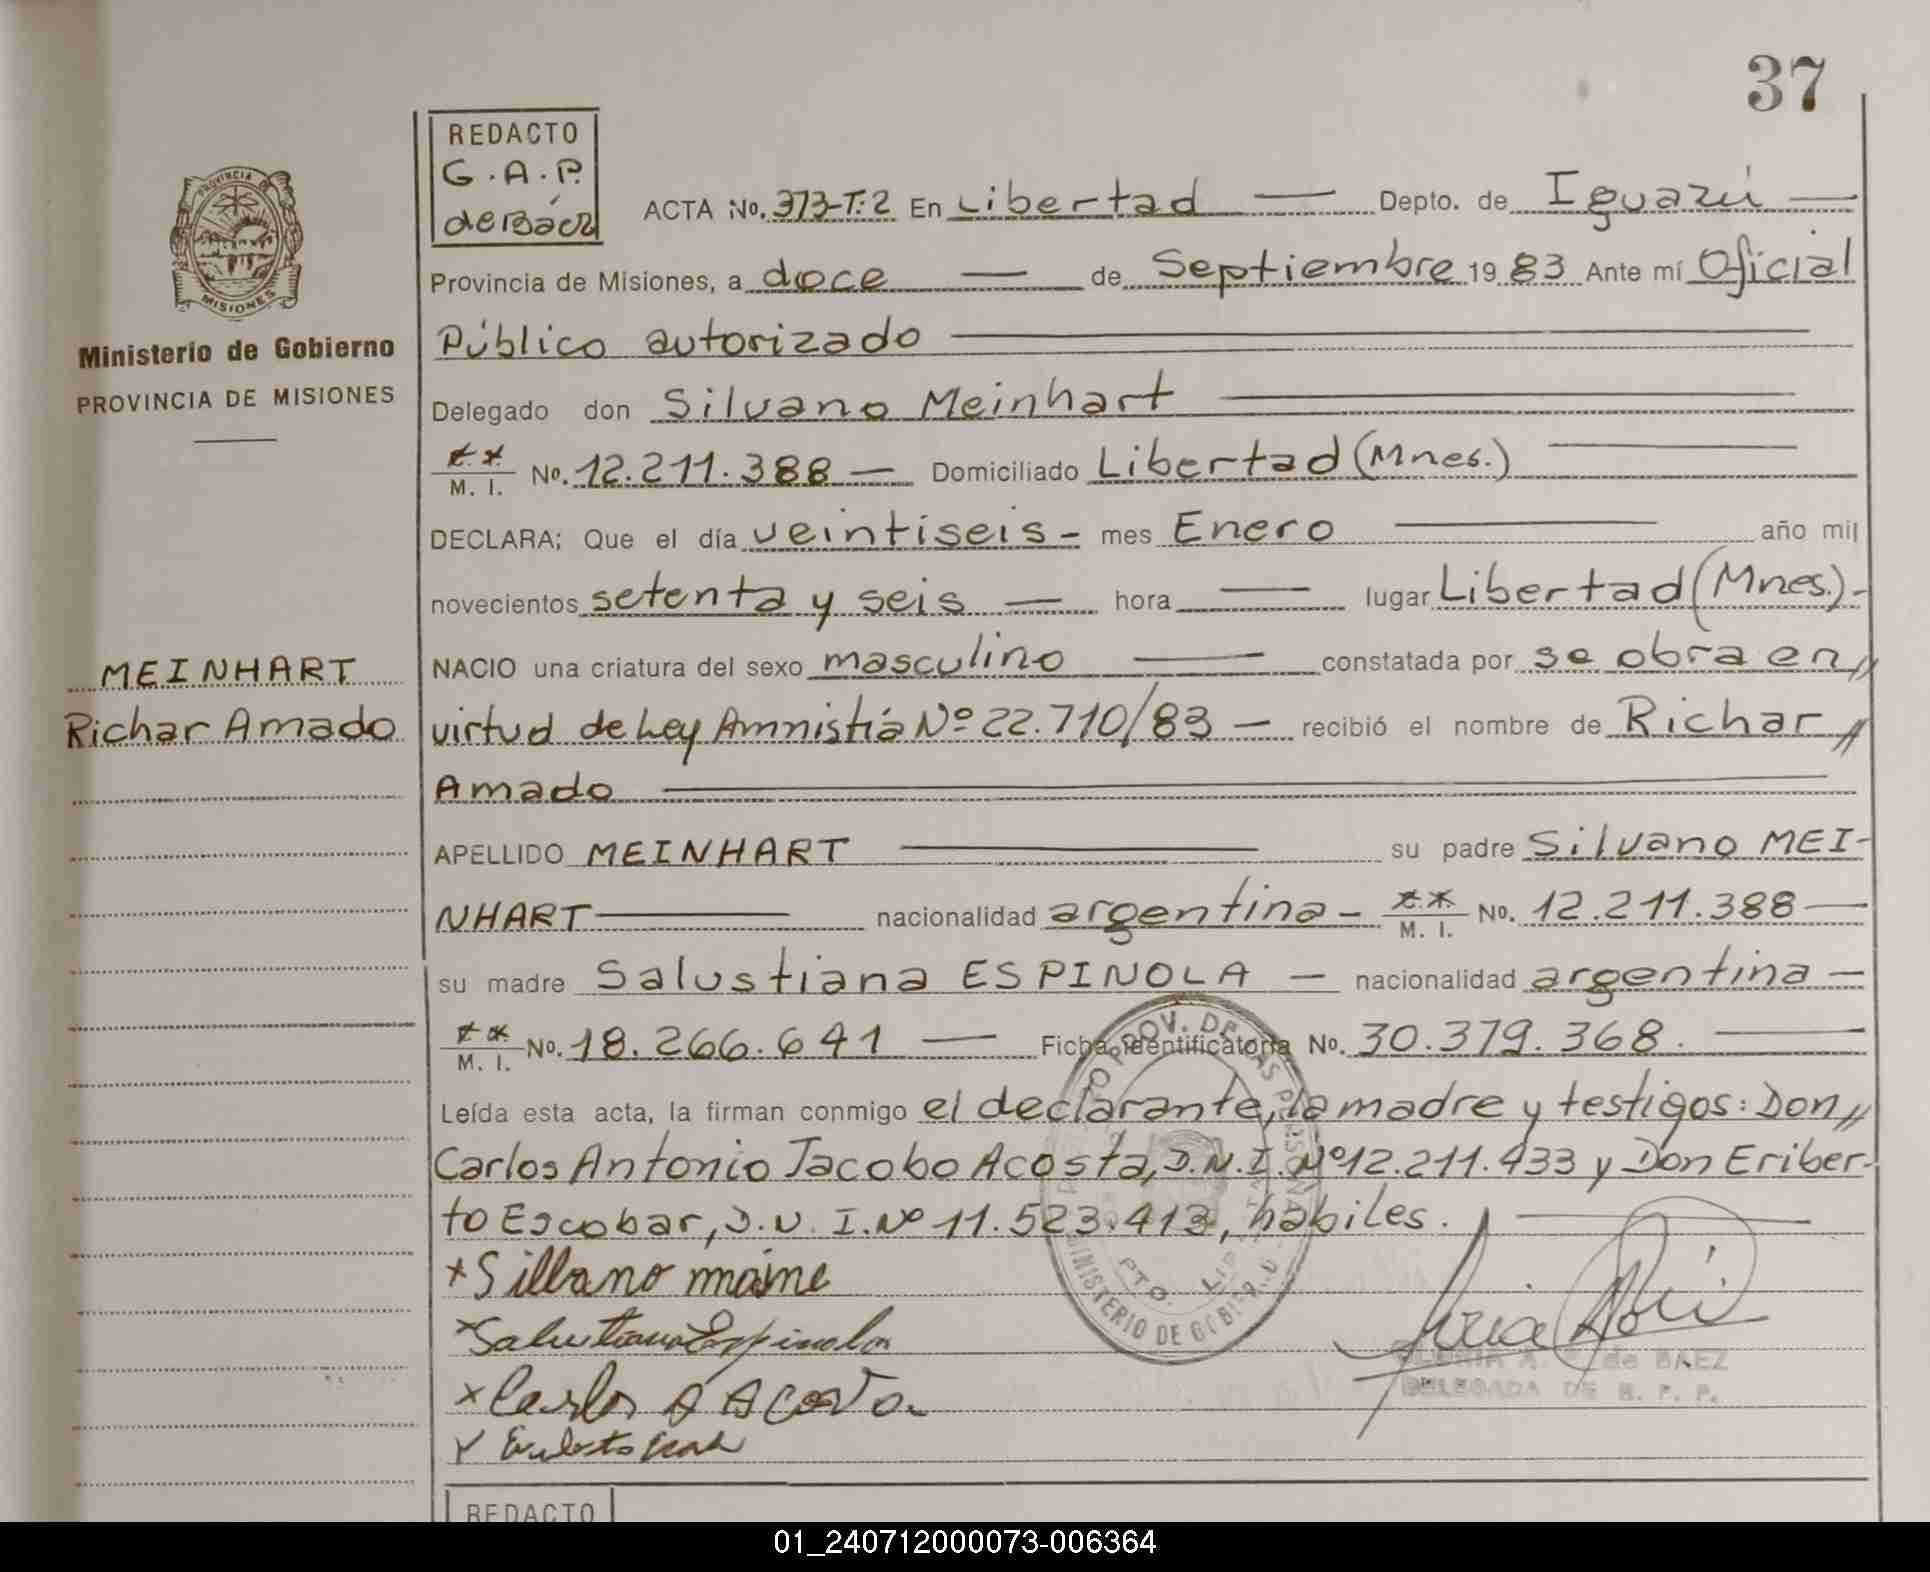 37
REDACTO
G.A.P.
de Báez
ACTA No. 373-T:2 En Libertad Depto. de Iguazú
Provincia de Misiones, a doce de Septiembre 1983 Ante mí Oficial
Público autorizado
PROVINCIA DE
MISIONES
Ministerio de Gobierno
PROVINCIA DE MISIONES
Delegado don Silvano Meinhart
M. I. No. 12.211.388 Domiciliado Libertad (Mnes.)
DECLARA; Que el día veintiseis - mes Enero año mil
novecientos setenta y seis hora lugar Libertad (Mnes.)-
MEINHART
Richar Amado
NACIO una criatura del sexo masculino constatada por se obra en //
virtud de Ley Amnistía Nº 22.710/83 recibió el nombre de Richar //
Amado
APELLIDO MEINHART su padre Silvano MEI-
NHART nacionalidad argentina - M. I. No. 12.211.388
su madre Salustiana ESPINOLA nacionalidad argentina
M. I. No. 18.266.641 Ficha Identificatoria No. 30.379.368.
Leída esta acta, la firman conmigo el declarante, la madre y testigos: Don //
Carlos Antonio Jacobo Acosta, D.N.I. Nº 12.211.433 y Don Eriber-
to Escobar, D.N.I. Nº 11.523.413, hábiles.
PROV. DE LAS PERSONAS
MINISTERIO DE GOBIERNO
x Sillbano maine
x Salustiana Espinola
x Carlos A Acosta
de BAEZ
DELEGADA DE R. P. P.
REDACTO
01_240712000073-006364